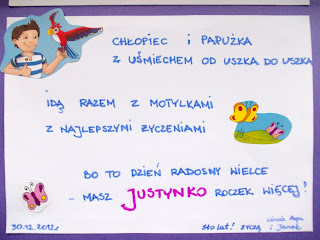 CHŁOPIEC i PAPUŻKA
Z UŚMIECHEM OD USZKA DO USZKA
IDĄ RAZEM Z MOTYLKAMI
Z NAJLEPSZYMI ŻYCZENIAMI
BO TO DZIEŃ RADOSNY WIELCE
- MASZ JUSTYNKO ROCZEK WIĘCEJ!
30.12.2012r.
STO LAT! ŻYCZĄ
ciocia Aga
i Janek